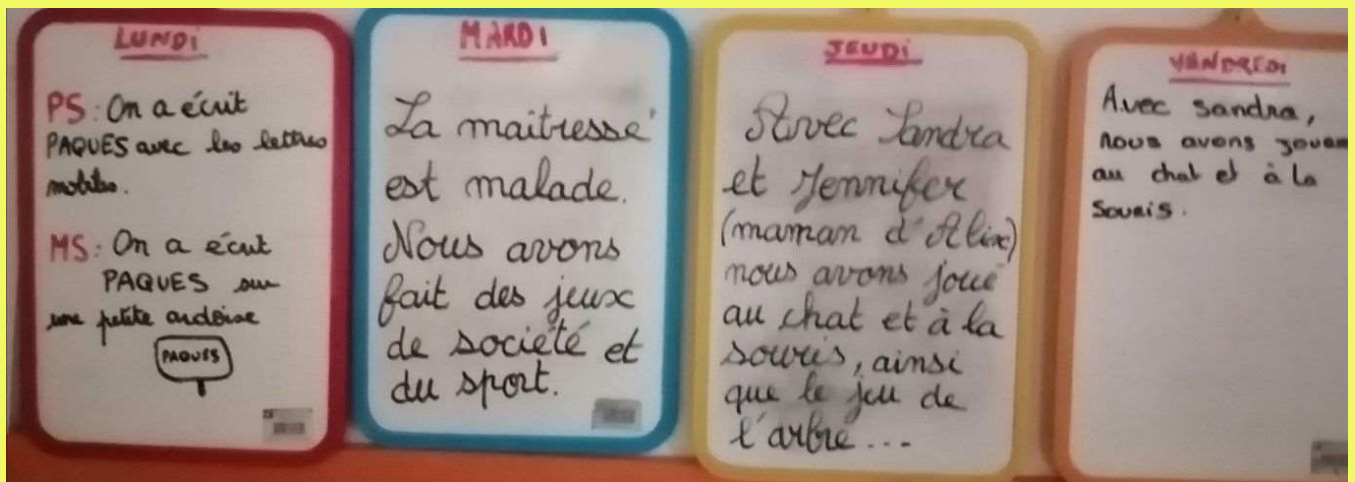 LUNDI
PS: On a écrit
PAQUES avec les lettres
mobiles.
MS: On a écrit
PAQUES sur
une petite ardoise
PAQUES
MARDI
La maitresse
est malade.
Nous avons
fait des jeux
de société et
du sport.
JEUDI
Avec Sandra
et Jennifer
(maman d'Alix)
nous avons joué
au chat et à la
souris, ainsi
que le jeu de
l'arbre...
VANDREDI
Avec Sandra,
nous avons
au chat et à la
souris.